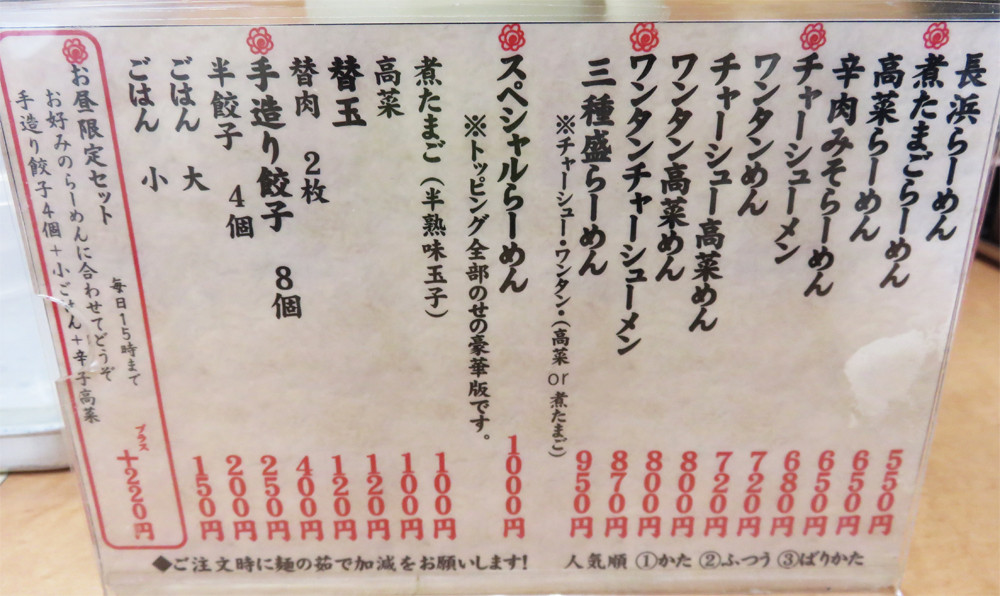 長浜らーめん 550円
煮たまごらーめん 650円
高菜らーめん 650円
辛肉みそらーめん 680円
チャーシューメン 720円
ワンタンめん 720円
チャーシュー高菜めん 800円
ワンタン高菜めん 800円
ワンタンチャーシューメン 870円
三種盛らーめん 950円
※チャーシュー・ワンタン・(高菜or煮たまご)
スペシャルらーめん 1000円
※トッピング全部のせの豪華版です。
煮たまご(半熟味玉子) 100円
高菜 100円
替玉 120円
替肉 2枚 120円
手造り餃子 8個 400円
半餃子 4個 250円
ごはん 大 200円
ごはん 小 150円
お昼限定セット 毎日15時まで プラス +220円
お好みのらーめんに合わせてどうぞ
手造り餃子4個+小ごはん+辛子高菜
◆ご注文時に麺の茹で加減をお願いします! 人気順 ①かた ②ふつう ③ばりかた